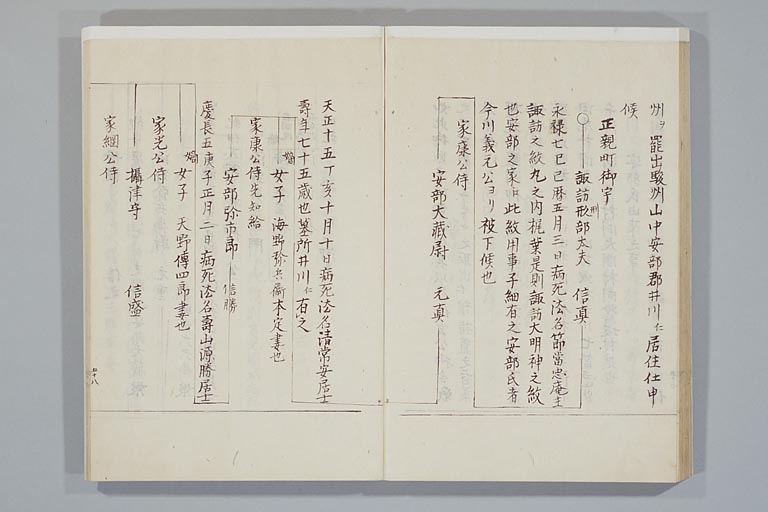 州ヲ罷出駿州山中安部郡井川ニ居住仕申
候
正親町御宇
諏訪形部太夫 信真
刑
永禄七巳巳暦五月三日病死法名節當忠庵主
諏訪之紋丸之内梶葉是則諏訪大明神之紋
也安部之家此紋用事子細有之安部氏者
今川義元公ヨリ被下候也
家康公侍
安部大藏尉 元真
天正十五丁亥十月十日病死法名清常安居士
壽年七十五歳也墓所井川ニ有之
嫡女子 海野弥兵衞本定妻也
家康公侍先知給
安部弥市郎 信勝
慶長五庚子正月二日病死法名壽山源勝居士
嫡女子 天野傳四郎妻也
家光公侍
攝津守 信盛
家綱公侍